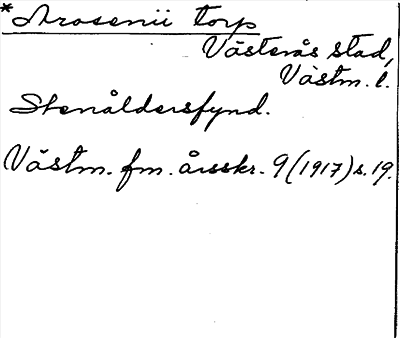 *Arosenii torp
Västerås stad,
Västm. l.
Stenåldersfynd.
Västm. fm. årsskr. 9 (1917) s. 19.